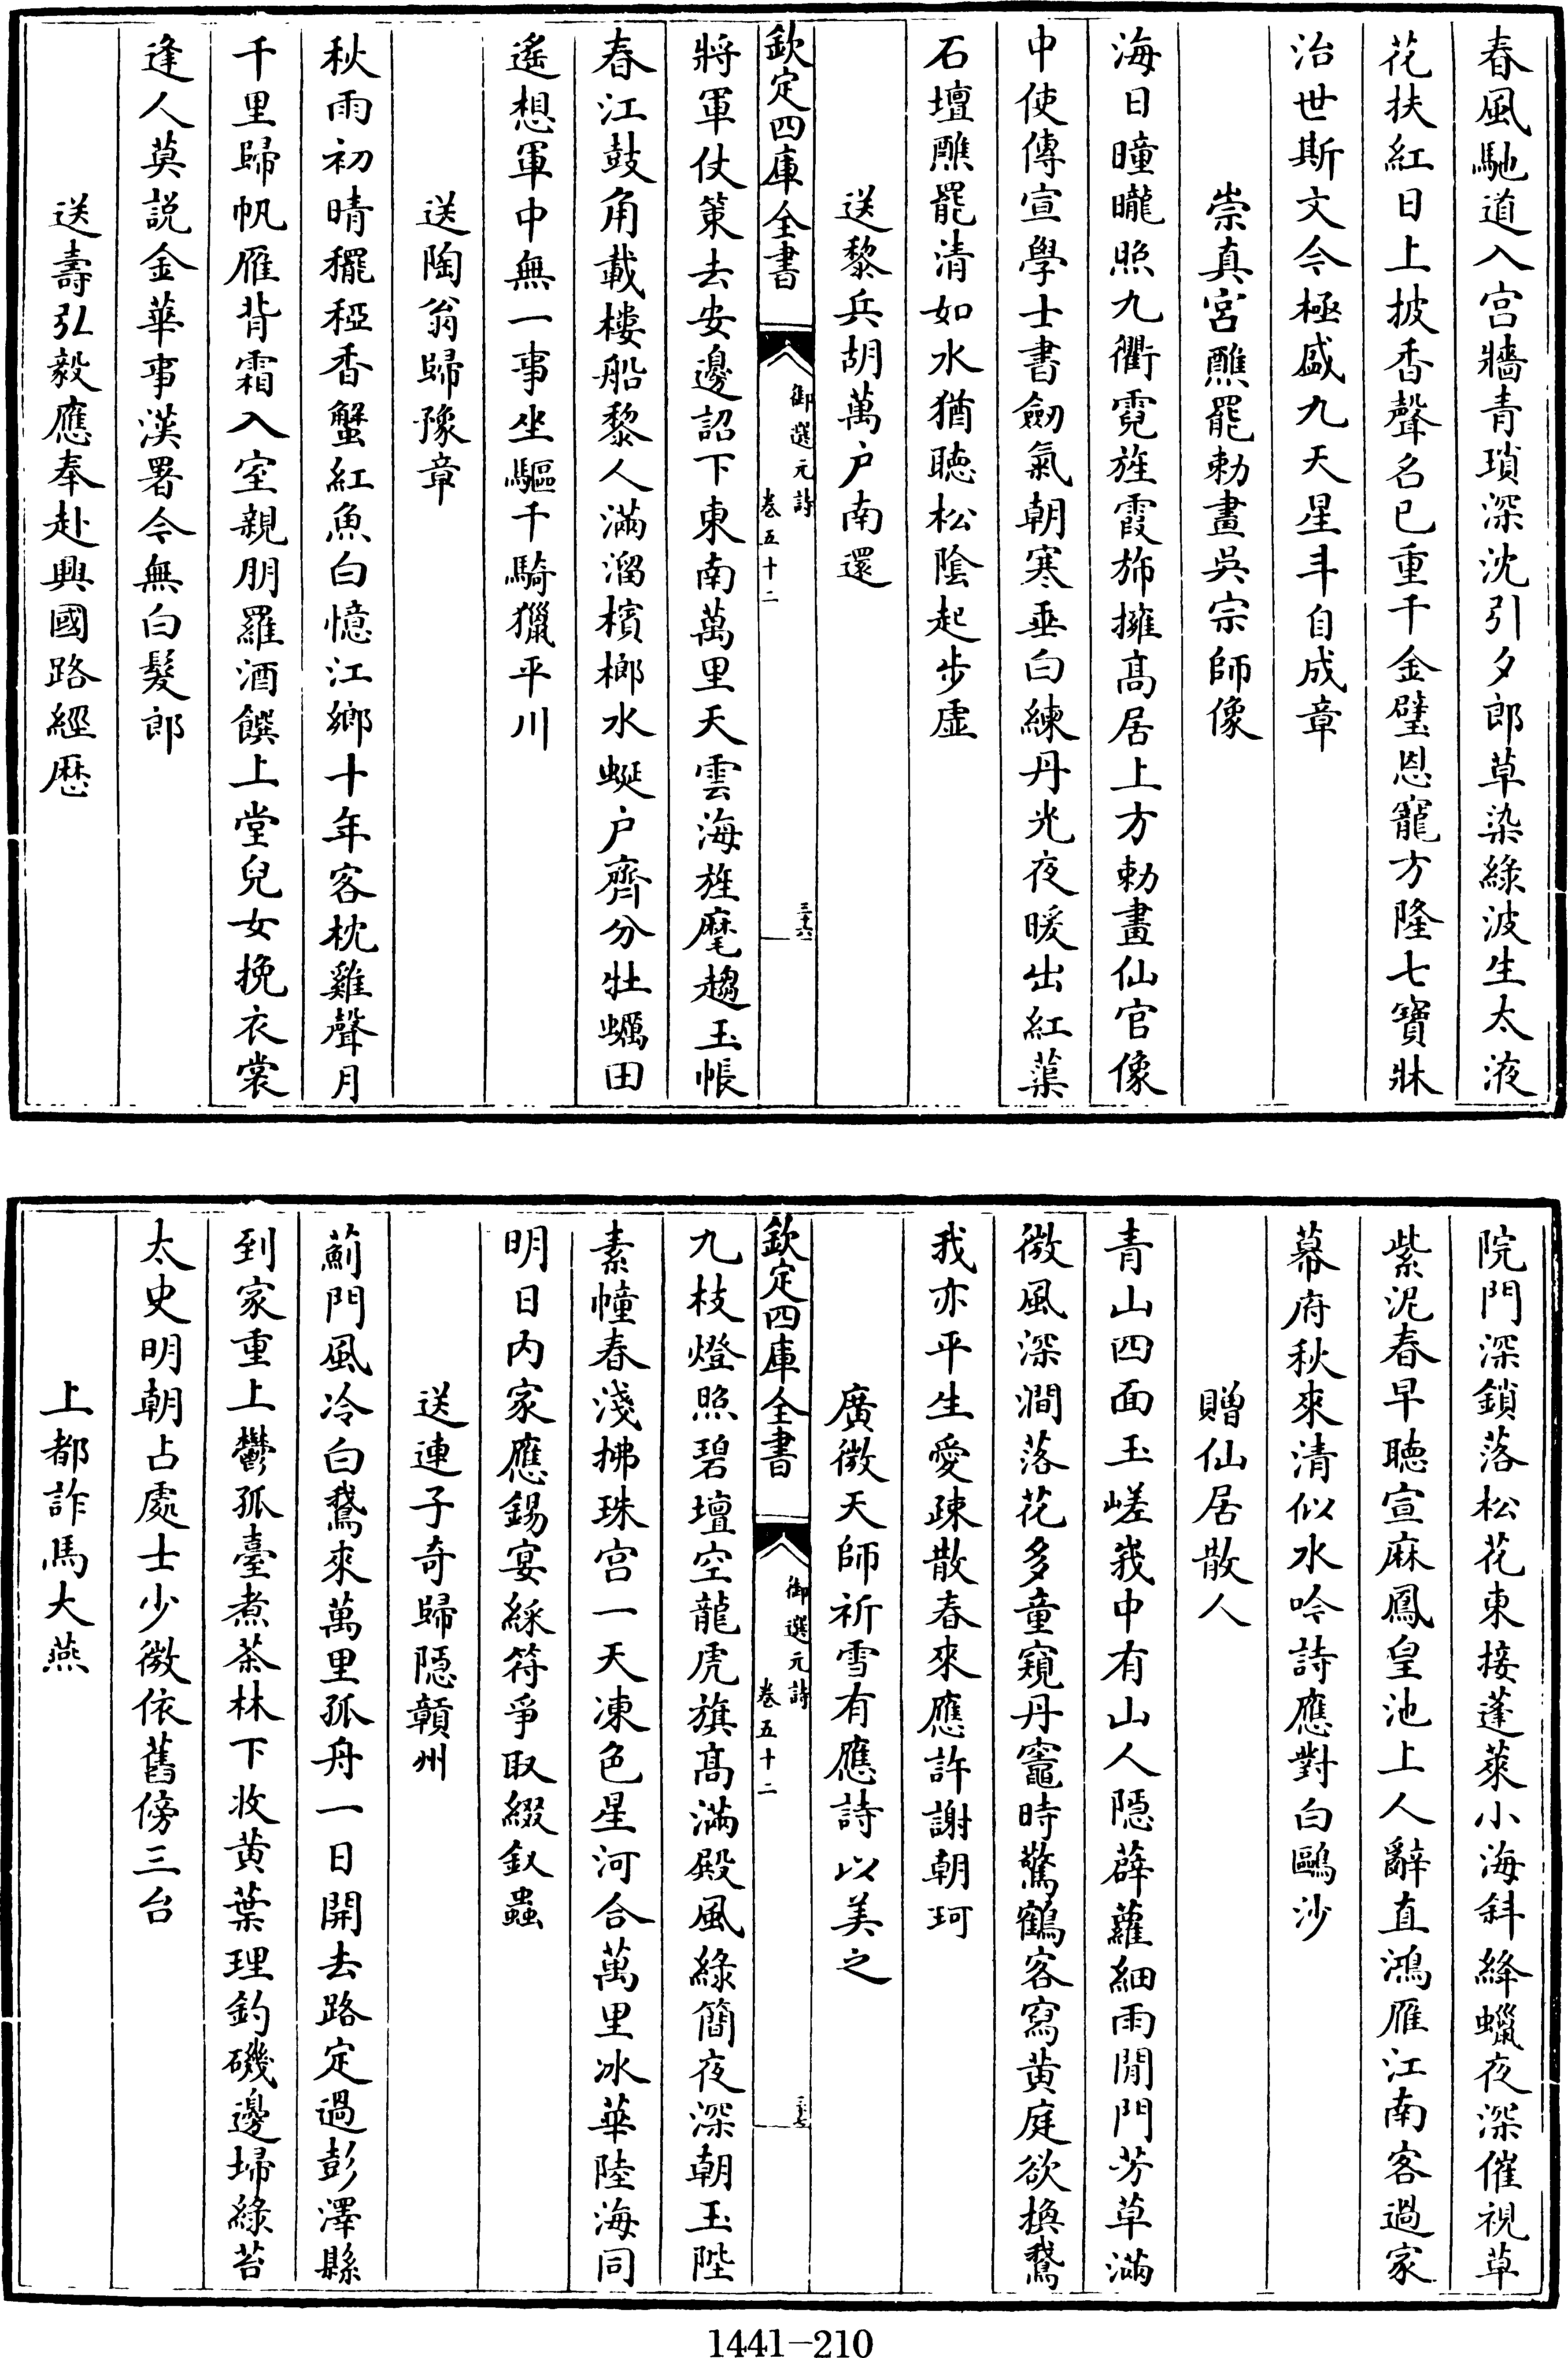 春風馳道入宫牆青瑣深沈引夕郎草染緑波生太液
花扶紅日上披香聲名已重千金璧恩寵方隆七寶牀
治世斯文今極盛九天星斗自成章
崇真宫醮罷勅畫吳宗師像
海日曈曨照九衢霓旌霞旆擁髙居上方勅畫仙官像
中使傳宣學士書劒氣朝寒垂白練丹光夜暖出紅蕖
石壇醮罷清如水猶聴松隂起步虚
送黎兵胡萬户南還
欽定四庫全書
御選元詩
卷五十二
三十六
將軍仗策去安邊詔下東南萬里天雲海旌麾趨玉帳
春江鼓角載樓船黎人滿溜檳榔水蜒户齊分牡蠣田
遙想軍中無一事坐驅千騎獵平川
送陶翁歸豫章
秋雨初晴䆉稏香蟹紅魚白憶江鄉十年客枕雞聲月
千里歸帆雁背霜入室親朋羅酒饌上堂兒女挽衣裳
逢人莫説金華事漢署今無白髮郎
送壽弘毅應奉赴興國路經歴
院門深鎖落松花東接蓬萊小海斜絳蠟夜深催視草
紫泥春早聴宣麻鳳皇池上人辭直鴻雁江南客過家
幕府秋來清似水吟詩應對白鷗沙
贈仙居散人
青山四面玉嵯峩中有山人隠薜蘿細雨閒門芳草滿
微風深澗落花多童窺丹竈時驚鶴客寫黄庭欲換鵞
我亦平生愛疎散春來應許謝朝珂
廣微天師祈雪有應詩以美之
欽定四庫全書
御選元詩
卷五十二
三十七
九枝燈照碧壇空龍虎旗髙滿殿風緑簡夜深朝玉陛
素幢春淺拂珠宫一天凍色星河合萬里冰華陸海同
明日内家應錫宴綵符爭取綴釵蟲
送連子奇歸隠贑州
薊門風冷白鵞來萬里孤舟一日開去路定過彭澤縣
到家重上鬱孤臺煮茶林下收黄葉理釣磯邊埽緑苔
太史明朝占處士少微依舊傍三台
上都詐馬大燕
1441-210